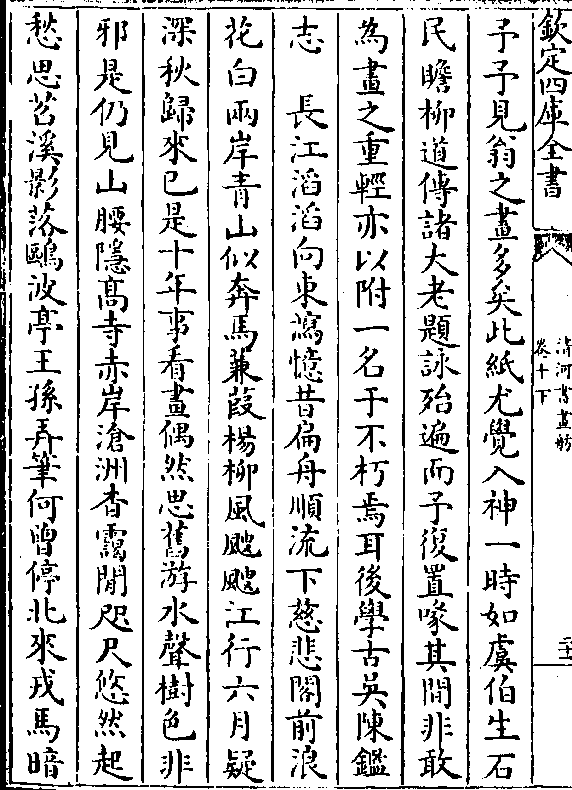 欽定四庫全書
清河書畫舫
卷十下
二十一
予予見翁之畫多矣此紙尤覺入神一時如虞伯生石
民瞻柳道傳諸大老題詠殆遍而予復置喙其間非敢
為畫之重輕亦以附一名于不朽焉耳後學古吳陳鑑
志　長江滔滔向東瀉憶昔扁舟順流下慈悲閣前浪
花白兩岸青山似奔馬蒹葭楊柳風颼颼江行六月疑
深秋歸來已是十年事看畫偶然思舊游水聲樹色非
邪是仍見山腰隱髙寺赤岸滄洲杳靄間咫尺悠然起
愁思苕溪影落鷗波亭王孫弄筆何曾停北來戎馬暗